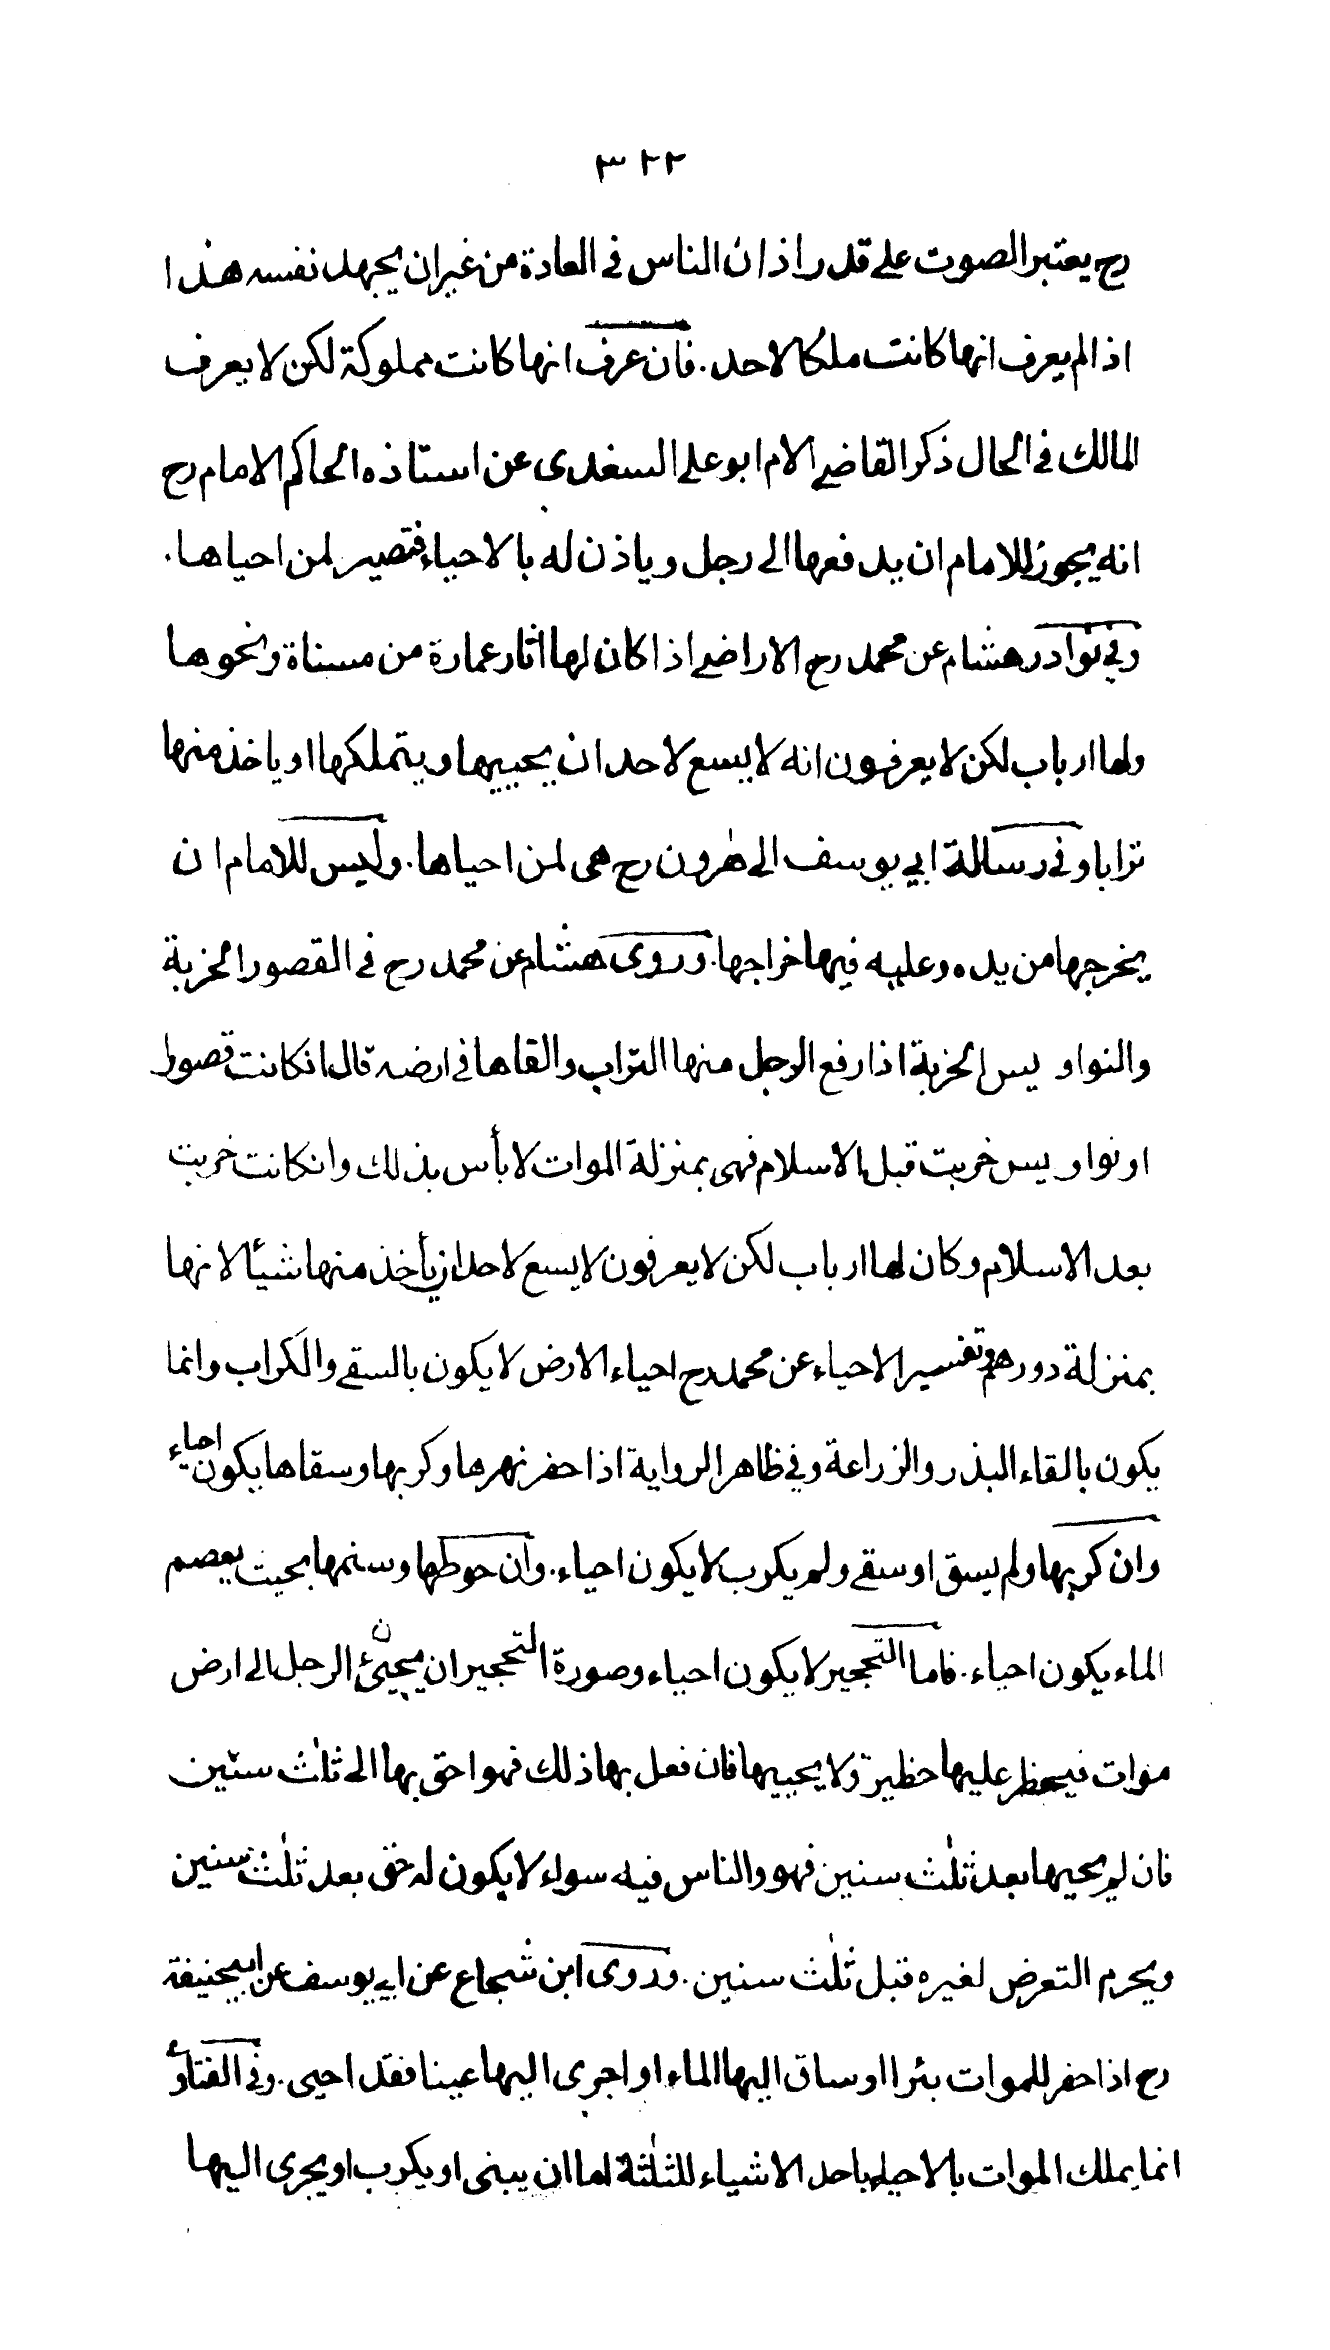 ٣٢٢
رح يعتبر الصوت على قدر اذان الناس في العادة من غير ان يجهد نفسه هذا
اذا لم يعرف انها كانت ملكا لاحد. فان عرف انها كانت مملوكة لكن لا يعرف
المالك في الحال ذكر القاضي الام ابو على السغدى عن استاذه الحاكم الامام رح
انه يجوز للامام ان يدفعها الى رجل وياذن له بالاحياء فتصير لمن احياها.
وفي نوادر هشام عن محمد رح الاراضي اذا كان لها اثار عمارة من مسناة ونحوها
ولها ارباب لكن لا يعرفون انه لا يسع لاحد ان يحييها ويتملكها او ياخذ منها
ترابا وفي رسالة ابي يوسف الى هٰرون رح هى لمن احياها. وليس للامام ان
يخرجها من يده وعليه فيها خراجها. وروى هشام عن محمد رح في القصور الخربة
والنواويس الخربة اذا رفع الرجل منها التراب والقاها في ارضه قال ان كانت قصور
او نواويس خربت قبل الاسلام فهى بمنزلة الموات لا بأس بذلك وان كانت خربت
بعد الاسلام وكان لها ارباب لكن لا يعرفون لا يسع لاحد ان يأخذ منها شيئا لانها
بمنزلة دورهم وتفسير الاحياء عن محمد رح احياء الارض لا يكون بالسقي والكراب وانما
يكون بالقاء البذر والزراعة وفي ظاهر الرواية اذا حفر نهرها وكربها وسقاها يكون احياء
وان كربها ولم يسق او سقى ولم يكرب لا يكون احياء. وان حوطها وسنمها بحيث يعصم
الماء يكون احياء. فاما التحجير لا يكون احياء وصورة التحجير ان يجيئ الرجل الى ارض
موات فيحظر عليها حظيرة ولا يحييها فان فعل بها ذلك فهو احق بها الى ثلٰث سنين
فان لم يحيها بعد ثلٰث سنين فهو والناس فيه سواء لا يكون له حق بعد ثلٰث سنين
ويحرم التعرض لغيره قبل ثلٰث سنين. وروى ابن شجاع عن ابي يوسف عن ابيحنيفة
رح اذا حفر للموات بئرا او ساق اليها الماء او اجرى اليها عينا فقد احيى. وفي الفتاوٰى
انما يملك الموات بالاحياء باحد الاشياء للثلٰثة اما ان يبنى او يكرب او يجرى اليها